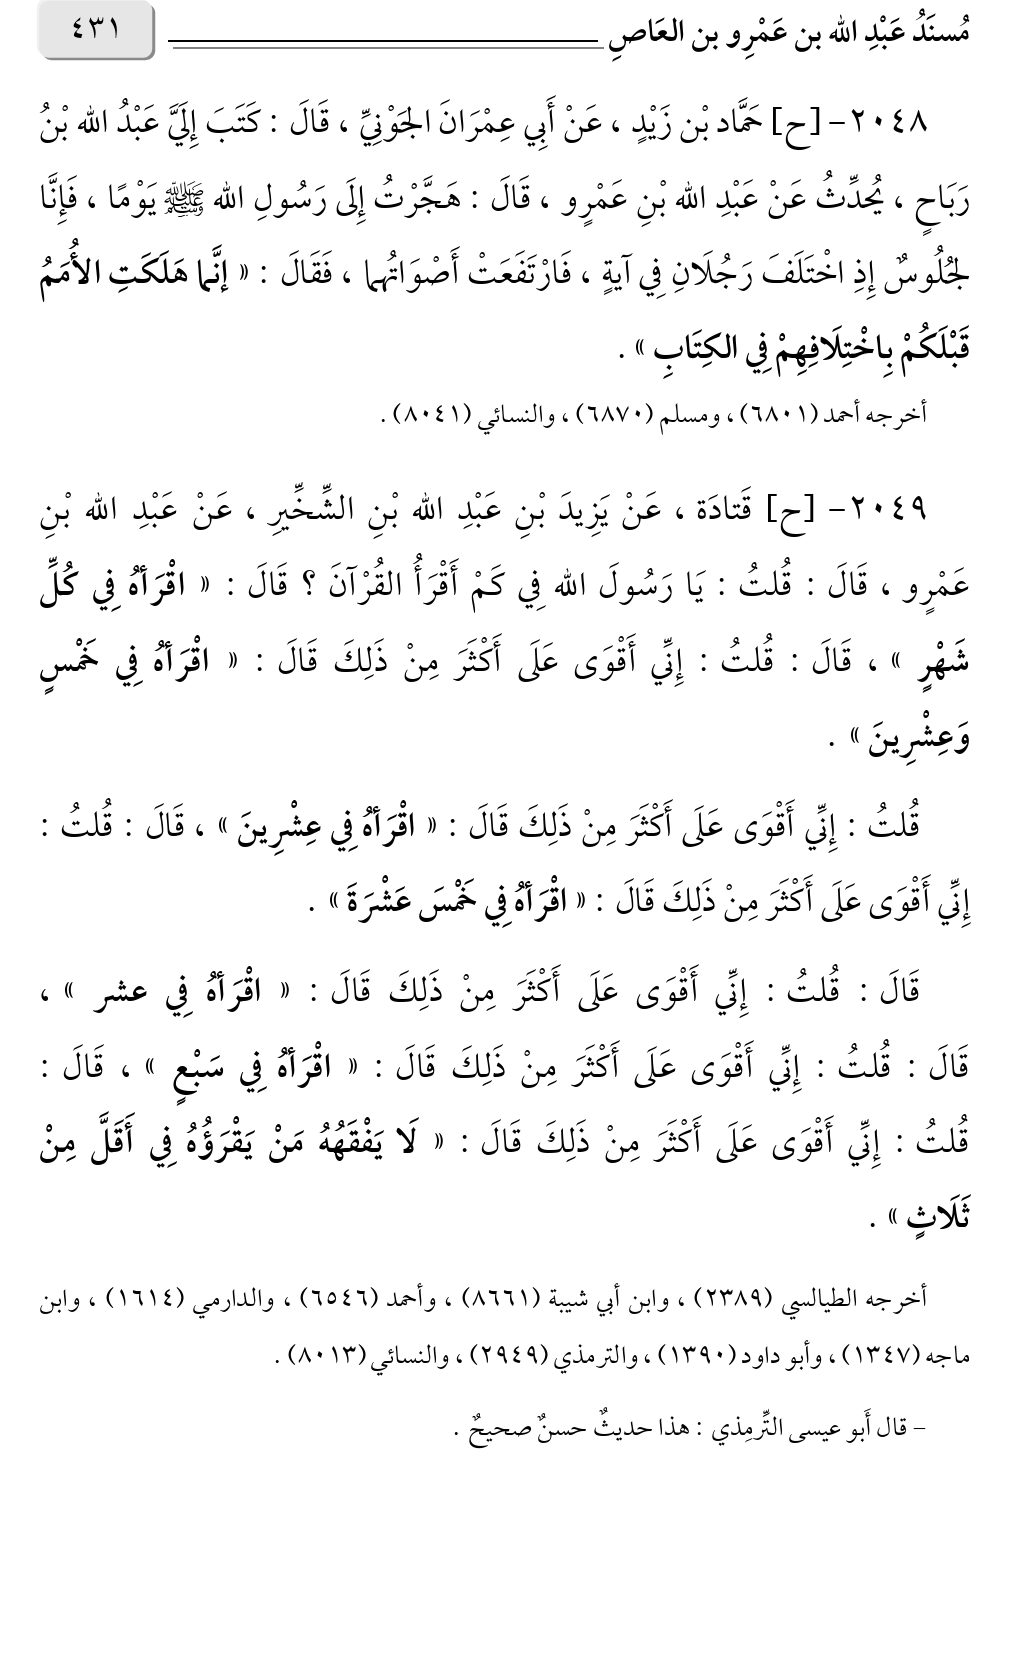 مُسنَدُ عَبْدِ الله بن عَمْرِو بن العَاصِ
٤٣١
٢٠٤٨ – [ح] حَمَّاد بْن زَيْدٍ ، عَنْ أَبِي عِمْرَانَ الجَوْنِيِّ ، قَالَ : كَتَبَ إِلَيَّ عَبْدُ الله بْنُ
رَبَاحٍ ، يُحدِّثُ عَنْ عَبْدِ الله بْنِ عَمْرٍو ، قَالَ : هَجَّرْتُ إِلَى رَسُولِ الله ﷺ يَوْمًا ، فَإِنَّا
لجُلُوسٌ إِذِ اخْتَلَفَ رَجُلَانِ فِي آيَةٍ ، فَارْتَفَعَتْ أَصْوَاتُهما ، فَقَالَ : « إنَّما هَلَكَتِ الأُمَمُ
قَبْلَكُمْ بِاخْتِلَافِهِمْ فِي الكِتَابِ » .
أخرجه أحمد (٦٨٠١) ، ومسلم (٦٨٧٠) ، والنسائي (٨٠٤١) .
٢٠٤٩ – [ح] قَتادَة ، عَنْ يَزِيدَ بْنِ عَبْدِ الله بْنِ الشِّخِّيرِ ، عَنْ عَبْدِ الله بْنِ
عَمْرٍو ، قَالَ : قُلتُ : يَا رَسُولَ الله فِي كَمْ أَقْرَأُ القُرْآنَ ؟ قَالَ : « اقْرَأهُ فِي كُلِّ
شَهْرٍ » ، قَالَ : قُلتُ : إِنِّي أَقْوَى عَلَى أَكْثَرَ مِنْ ذَلِكَ قَالَ : « اقْرَأهُ فِي خَمْسٍ
وَعِشْرِينَ » .
قُلتُ : إِنِّي أَقْوَى عَلَى أَكْثَرَ مِنْ ذَلِكَ قَالَ : « اقْرَأهُ فِي عِشْرِينَ » ، قَالَ : قُلتُ :
إِنِّي أَقْوَى عَلَى أَكْثَرَ مِنْ ذَلِكَ قَالَ : « اقْرَأهُ فِي خَمْسَ عَشْرَةَ » .
قَالَ : قُلتُ : إِنِّي أَقْوَى عَلَى أَكْثَرَ مِنْ ذَلِكَ قَالَ : « اقْرَأهُ فِي عشر » ،
قَالَ : قُلتُ : إِنِّي أَقْوَى عَلَى أَكْثَرَ مِنْ ذَلِكَ قَالَ : « اقْرَأهُ فِي سَبْعٍ » ، قَالَ :
قُلتُ : إِنِّي أَقْوَى عَلَى أَكْثَرَ مِنْ ذَلِكَ قَالَ : « لَا يَفْقَهُهُ مَنْ يَقْرَؤُهُ فِي أَقَلَّ مِنْ
ثَلَاثٍ » .
أخرجه الطيالسي (٢٣٨٩) ، وابن أبي شيبة (٨٦٦١) ، وأحمد (٦٥٤٦) ، والدارمي (١٦١٤) ، وابن
ماجه (١٣٤٧) ، وأبو داود (١٣٩٠) ، والترمذي (٢٩٤٩) ، والنسائي (٨٠١٣) .
– قال أَبو عيسى التِّرمِذي : هذا حديثٌ حسنٌ صحيحٌ .